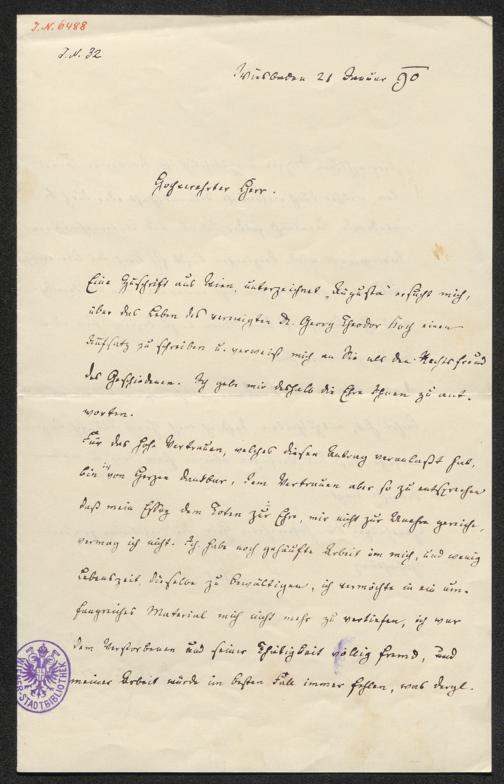 J. N. 6488
J. N. 32
Wiesbaden 21 Januar 90
Hochverehrter Herr.
Eine Zuschrift aus Wien, unterzeichnet „Augusta" ersucht mich,
über das Leben des verewigten Dr. Georg Theodor einen
Aufsatz zu schreiben u. verweist mich an Sie als den Rechtsfreund
des Geschiedenen. Ich gebe mir deshalb die Ehre Ihnen zu ant-
worten.
Für das hohe Vertrauen, welches diesen Antrag veranlaßt hat,
bin ich von Herzen dankbar, dem Vertrauen aber so zu entsprechen
daß mein Essay dem Toten zur Ehre, mir nicht zur Unehre gereiche,
vermag ich nicht. Ich habe noch gehäufte Arbeit um mich, und wenig
Lebenszeit, dieselbe zu bewältigen, ich vermöchte in ein um-
fangreiches Material mich nicht mehr zu vertiefen, ich war
dem Verstorbenen und seiner Thätigkeit völlig fremd, und
meiner Arbeit würde im besten Fall immer fehlen, was dergl.
STADTBIBLIOTHEK